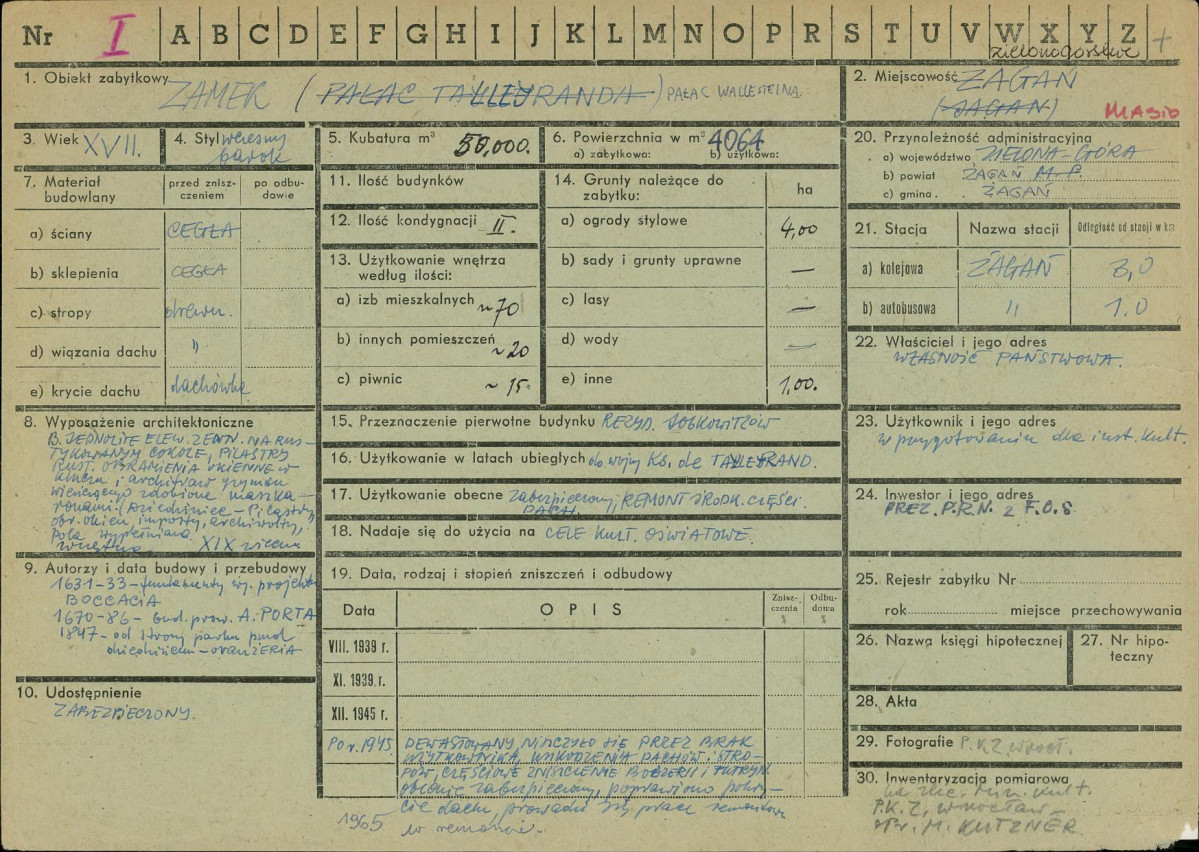 Nr I A B C D E F G H I J K L M N O P R S T U V W X Y Z +
zielonogórskie
1. Obiekt zabytkowy ZAMEK (PAŁAC TALLEYRANDA) PAŁAC WALLESTEINA
2. Miejscowość ŻAGAŃ
(ŻAGAŃ)
MIASTO
3. Wiek XVII.
4. Styl wczesny
barok
5. Kubatura m³ 50,000.
6. Powierzchnia w m² 4064
a) zabytkowa: b) użytkowa:
7. Materiał
budowlany
przed znisz-
czeniem
po odbu-
dowie
a) ściany CEGŁA
b) sklepienia CEGŁA
c) stropy drewn.
d) wiązania dachu "
e) krycie dachu dachówka
8. Wyposażenie architektoniczne
B. JEDNOLITE ELEW. ZEWN. NA RUS-
TYKOWANYM COKOLE, PILASTRY
RUST. OBRAMIENIA OKIENNE w
kluczu i architraw gzymsu
wieńczącego zdobione maszka-
ronami. (Dziedziniec - Pilastry,
obr. okien, imposty, archiwolty,
pola wypełniane
wnętrza XIX wieczne
9. Autorzy i data budowy i przebudowy
1631-33 - fundamenty wg. projektu
BOCCACIA
1670-86 - bud. prow. A. PORTA
1847 - od strony parku pod
dziedzińcem - ORANŻERIA
10. Udostępnienie
ZABEZPIECZONY.
11. Ilość budynków
12. Ilość kondygnacji II.
13. Użytkowanie wnętrza
według ilości:
a) izb mieszkalnych ~70
b) innych pomieszczeń ~20
c) piwnic ~15.
14. Grunty należące do
zabytku:
ha
a) ogrody stylowe 4,00
b) sady i grunty uprawne —
c) lasy —
d) wody —
e) inne 1,00.
15. Przeznaczenie pierwotne budynku REZYD. LOBKOWITZÓW
16. Użytkowanie w latach ubiegłych do wojny Ks. de TALLEYRAND.
17. Użytkowanie obecne zabezpieczony, REMONT ŚRODK. CZĘŚCI
DACH.
18. Nadaje się do użycia na CELE KULT. OŚWIATOWE.
19. Data, rodzaj i stopień zniszczeń i odbudowy
Data OPIS
Znisz-
czenia
%
Odbu-
dowa
%
VIII. 1939 r.
XI. 1939 r.
XII. 1945 r.
Po r. 1945 DEWASTOWANY, NISZCZYŁO SIĘ PRZEZ BRAK
UŻYTKOWNIKA, USZKODZENIA DACHÓW i STRO-
PÓW, CZĘŚCIOWE ZNISZCZENIE BOAZERII i
obecnie zabezpieczony, poprawiono pokry-
cie dachu, prowadzi się prace remontowe
1965 w remoncie.
20. Przynależność administracyjna
a) województwo ZIELONA-GÓRA
b) powiat ŻAGAŃ M.P.
c) gmina ŻAGAŃ
21. Stacja Nazwa stacji Odległość od stacji w km
a) kolejowa ŻAGAŃ 3,0
b) autobusowa " 1.0
22. Właściciel i jego adres
WŁASNOŚĆ PAŃSTWOWA.
23. Użytkownik i jego adres
w przygotowaniu dla inst. kult.
24. Inwestor i jego adres
PREZ. P.R.N. z F.O.S
25. Rejestr zabytku Nr
rok miejsce przechowywania
26. Nazwa księgi hipotecznej
27. Nr hipo-
teczny
28. Akta
29. Fotografie P.K.Z. wrocł.
30. Inwentaryzacja pomiarowa
na zlec. Min. Kult.
P.K.Z. WROCŁAW
M. KUTZNER